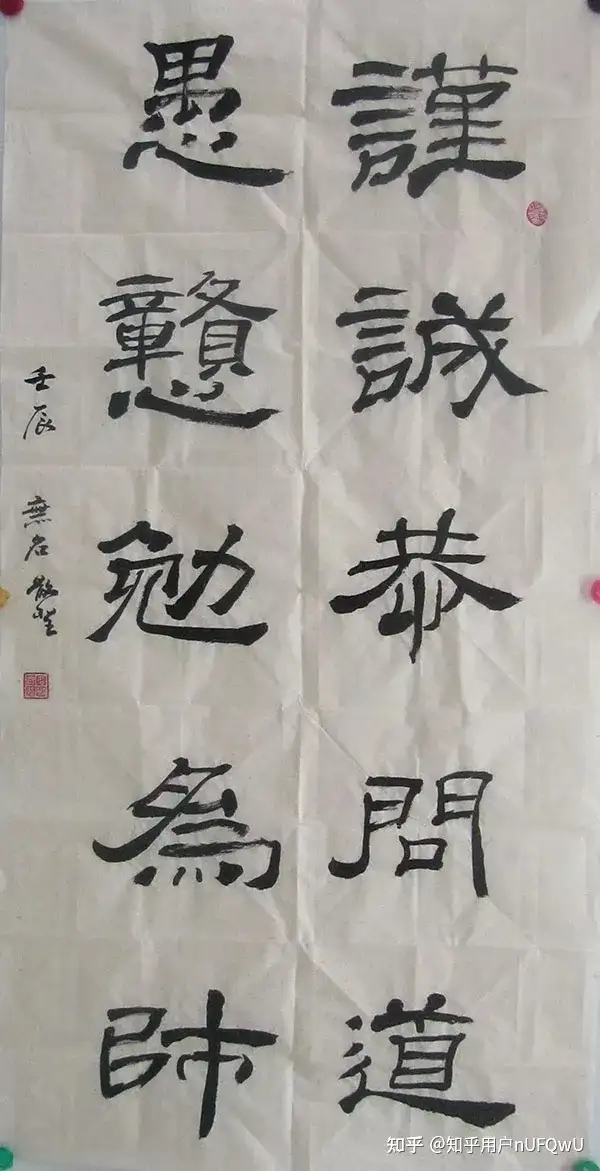 謹誠恭問道
愚戇勉為師
壬辰 無名散聖
知乎 @知乎用户nUFQwU